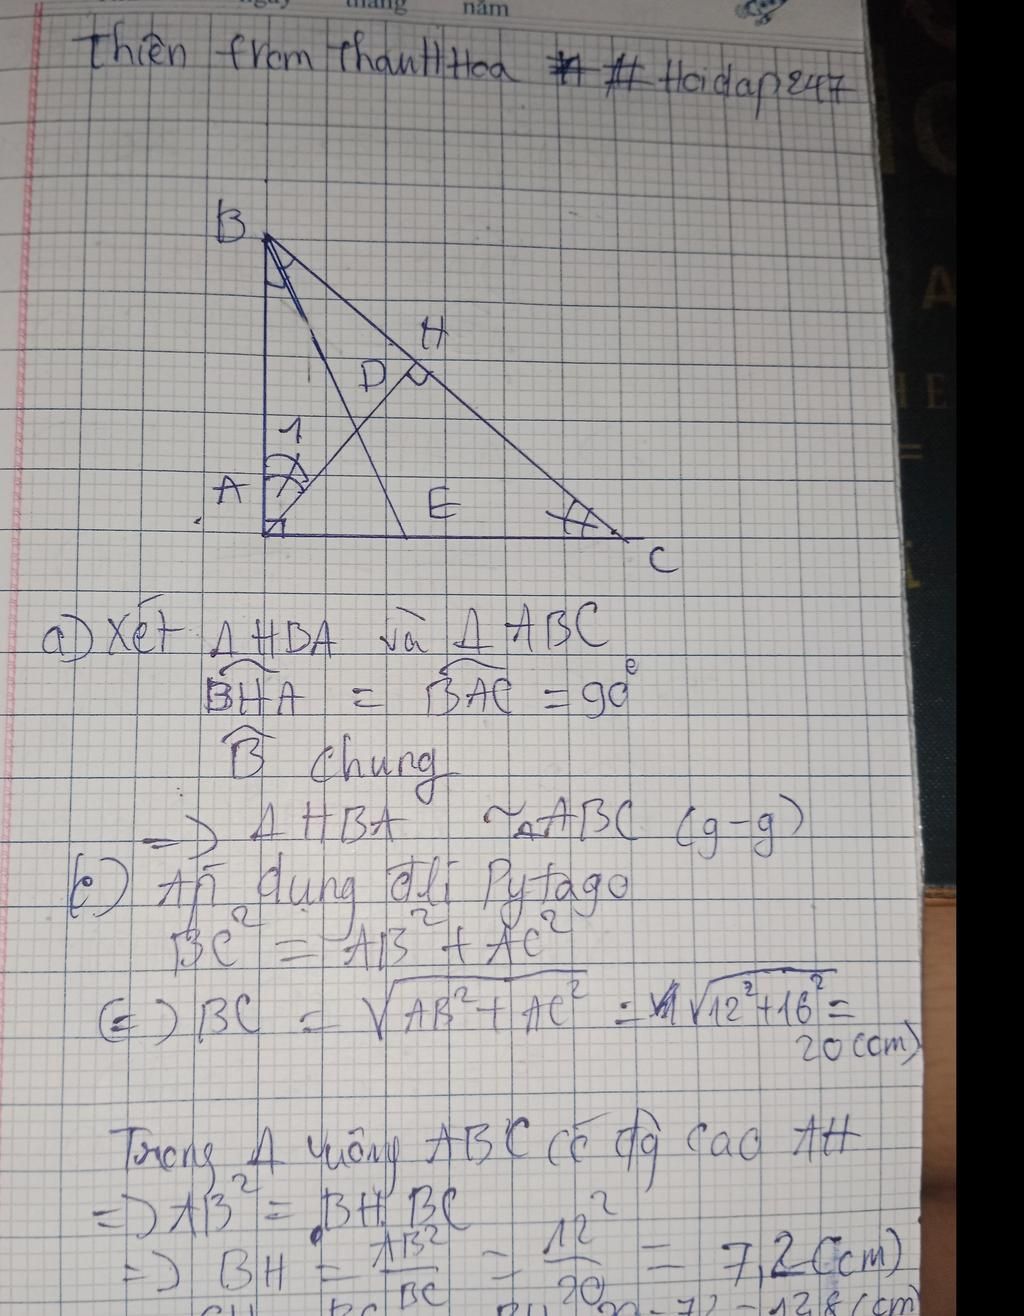 tháng năm
Thiên from ThanHHoa # Hoidap247
B
H
D
1
A
E
C
a) Xét Δ HBA và Δ ABC
BHA = BAC = 90°
B chung
=> Δ HBA ~ Δ ABC (g-g)
Áp dụng đlí Pytago
BC² = AB² + AC²
(=) BC = √AB² + AC² = √12² + 16² =
20 (cm)
Trong Δ vuông ABC có đg cao AH
=> AB² = BH . BC
=> BH = AB²/BC = 12²/20 = 7,2 (cm)
12,8 (cm)